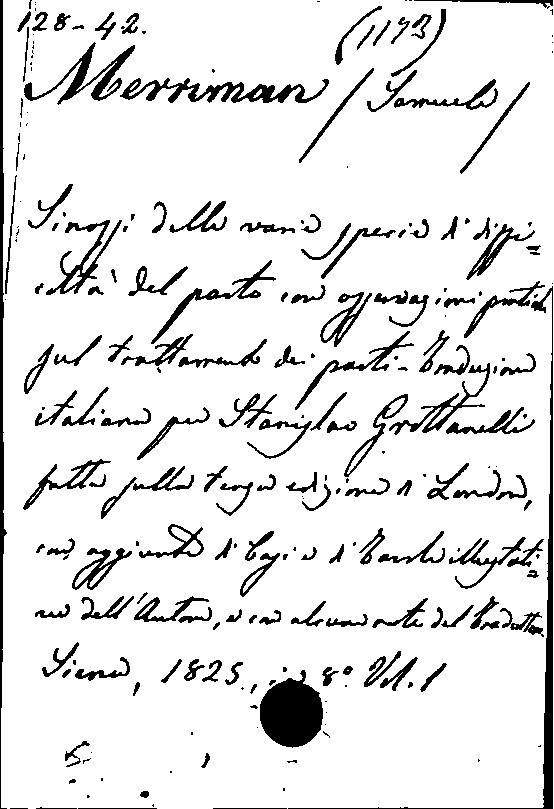 128-42. (1173)
Merriman / Samuele /
Sinossi delle varie specie di diffi=
coltà del parto con osservazioni pratiche
sul trattamento dei parti - Traduzione
italiana per Stanislao Grottanelli
fatta sulla terza edizione di London,
con aggiunte di Casi e di Tavole illustrati=
ve dell'Autore, e con alcune note del Traduttore.
Siena, 1825, in 8° Vol. 1